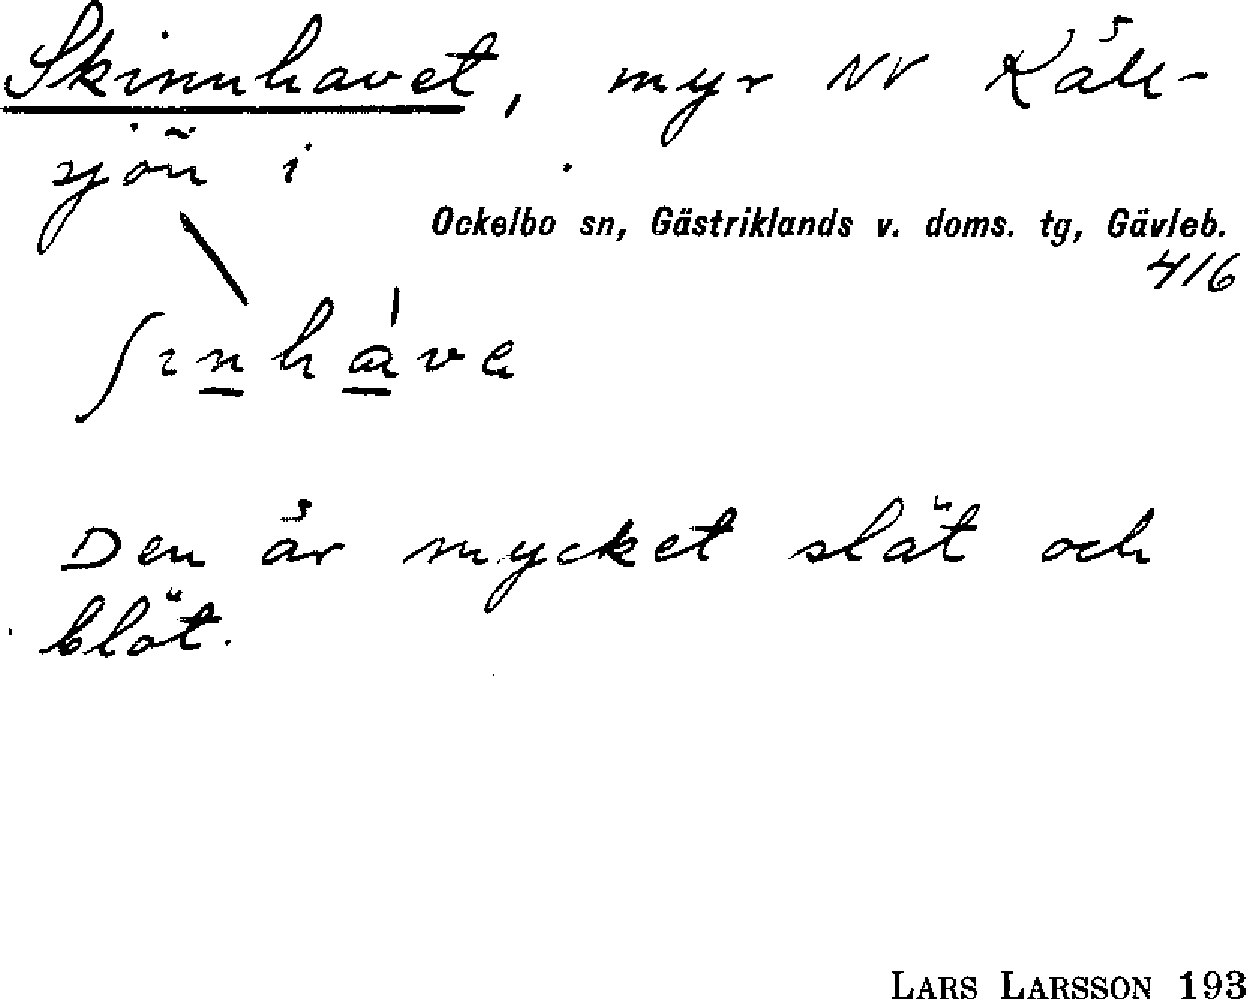 Skinnhavet, myr NV Käll-
sjön i
Ockelbo sn, Gästriklands v. doms. tg, Gävleb.
416
ʃɩnháve
Den är mycket slät och
blöt.
LARS LARSSON 193